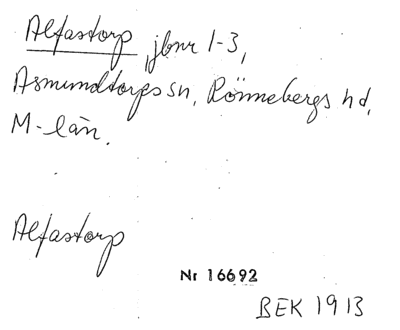 Alfastorp, jbnr 1-3,
Asmundtorps sn, Rönnebergs hd,
M-län.
Alfastorp
Nr 16692
BEK 1913